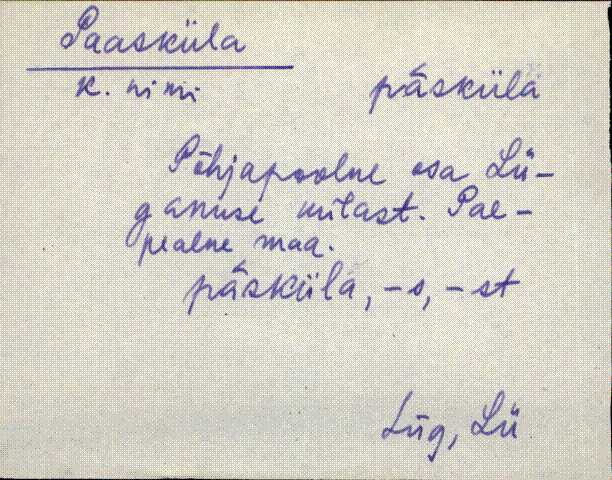 Paasküla
k. nimi
pāskülä
Põhjapoolne osa Lü-
ganuse mõtast. Pae-
pealne maa.
pāskülä, -s, -st
Lüg, Lü